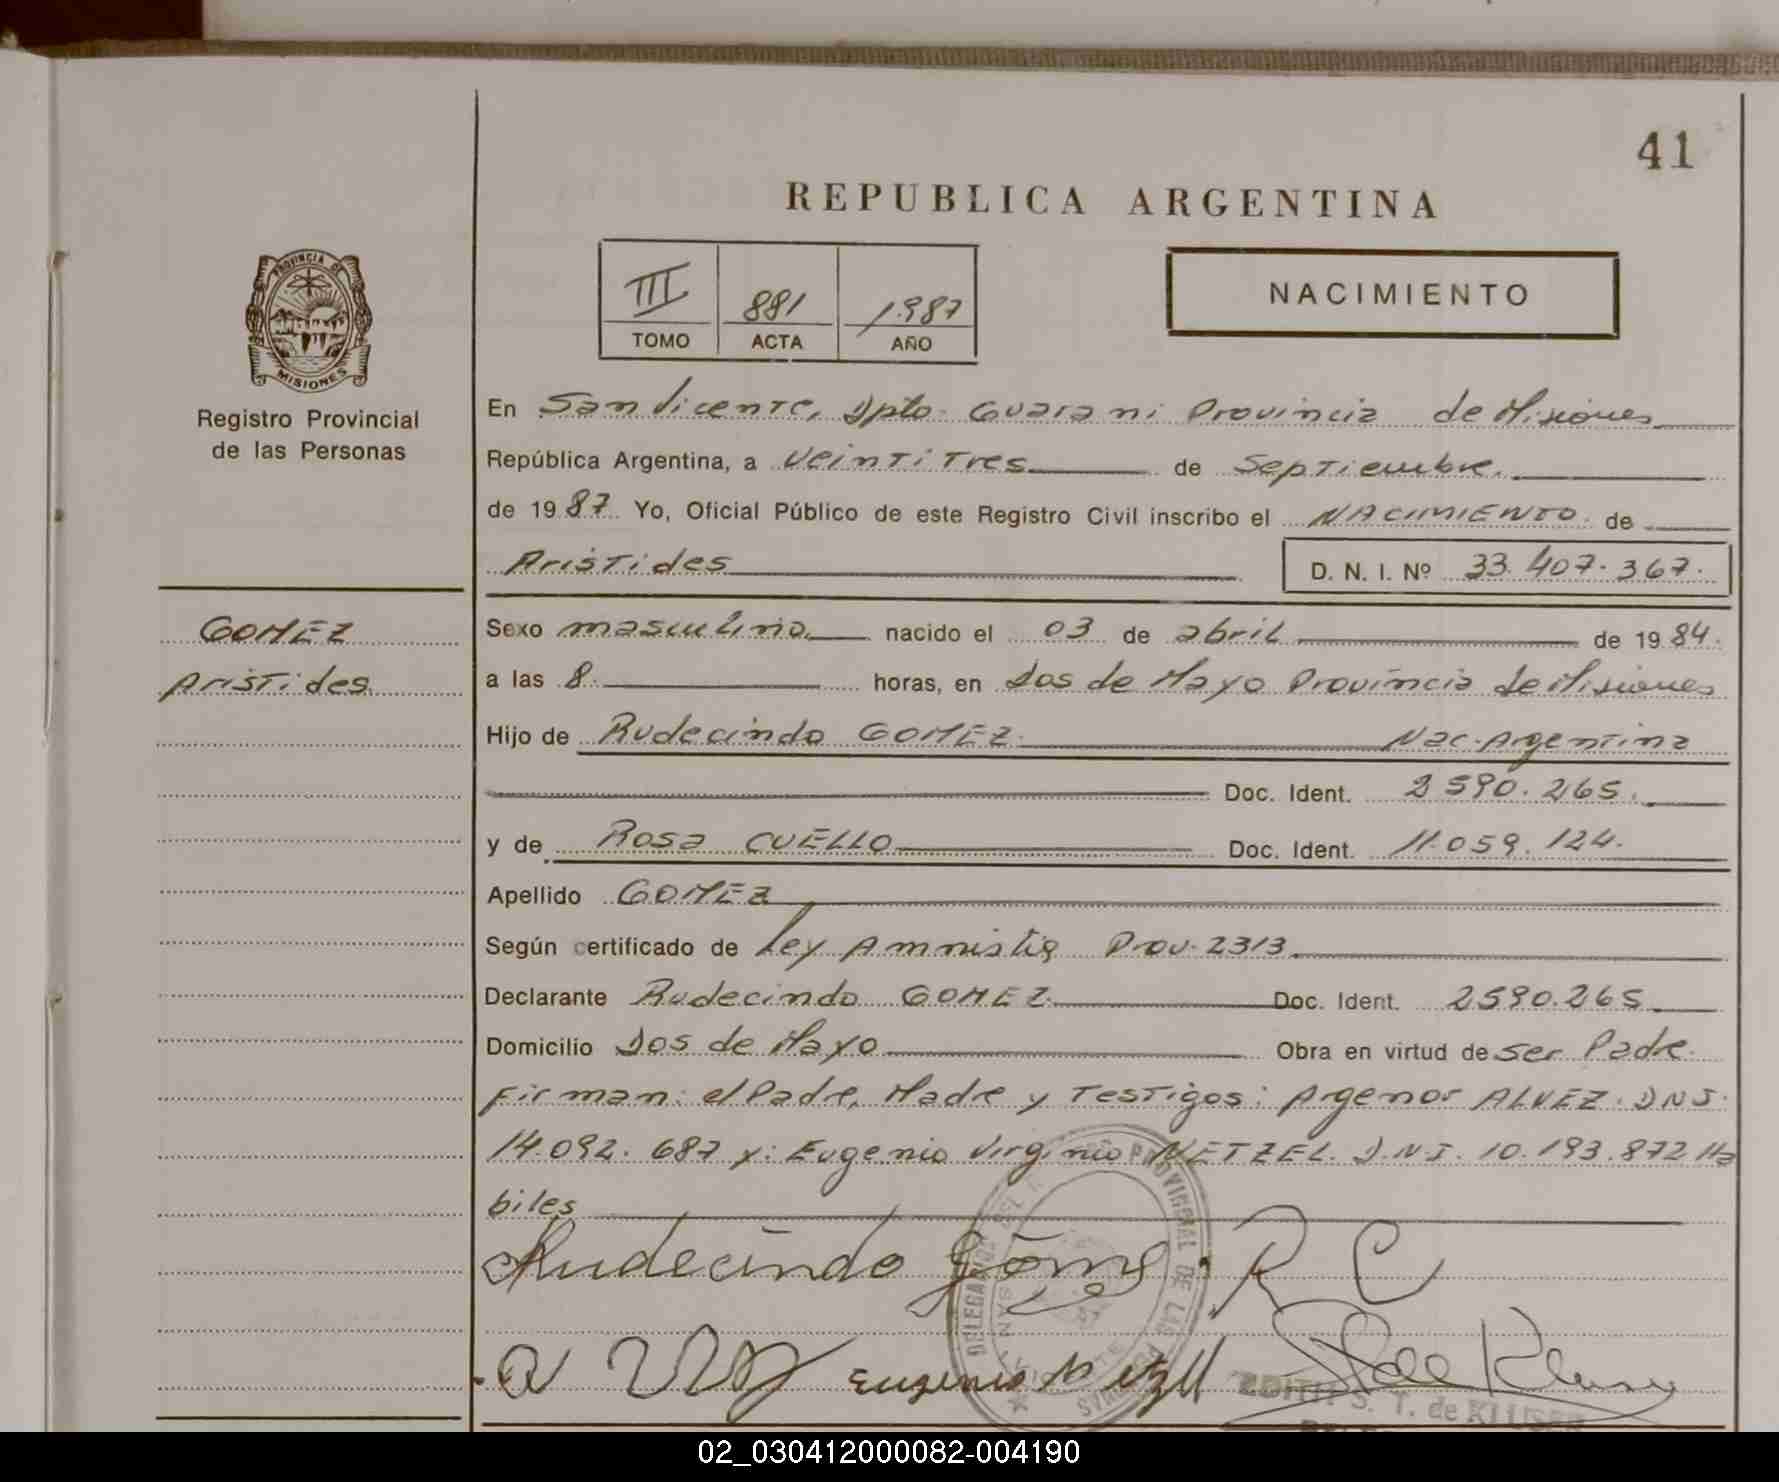 41
REPUBLICA ARGENTINA
III 881 1987
TOMO ACTA AÑO
NACIMIENTO
PROVINCIA DE
MISIONES
Registro Provincial
de las Personas
GOMEZ
Aristides
En San Vicente, Dpto. Guarani Provincia de Misiones
República Argentina, a Veintitres de Septiembre.
de 1987 Yo, Oficial Público de este Registro Civil inscribo el NACIMIENTO de
Aristides D. N. I. Nº 33.407.367.
Sexo masculino nacido el 03 de abril de 1984.
a las 8. horas, en Dos de Mayo Provincia de Misiones
Hijo de Rudecindo GOMEZ. Nac. Argentina
Doc. Ident. 2590.265.
y de Rosa CUELLO Doc. Ident. 11.059.124.
Apellido GOMEZ
Según certificado de Ley Amnistia Prov. 2313
Declarante Rudecindo GOMEZ Doc. Ident. 2590.265
Domicilio Dos de Mayo Obra en virtud de ser Padre.
Firman: el Padre, Madre y Testigos: Agenor ALVEZ. DNI.
14.092.687 y: Eugenio Virginio NETZEL. D.N.I. 10.193.872 Ha
biles
Rudecindo Gómez R C
Eugenio
EDITH S. T. de KLUSER
02_030412000082-004190